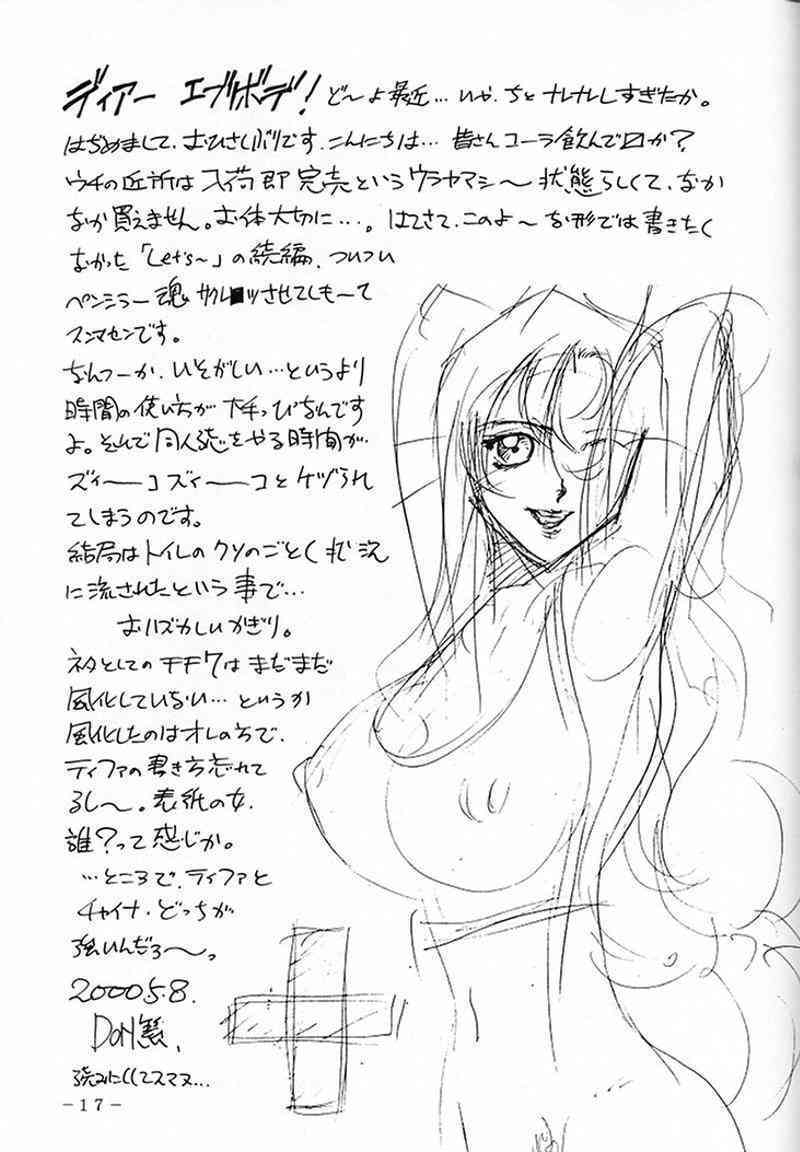 ディアー エブリボデ! ど〜よ最近…いや、ちとナレナレしすぎたか。
はぢめまして、おひさしぶりです、こんにちは… 皆さんコーラ飲んでロか?
ウチの近所は入荷即完売というウラヤマシ〜状態らしくて、なか
なか買えません。お体大切に…。はてさて、このよ〜な形では書きたく
なかった「Let's〜」の続編、ついつい
ペンシラー魂 サクレツさせてしもーて
スンマセンです。
なんつーか、いそがしい…というより
時間の使い方がヘタっぴなんです
よ。そんで同人誌をやる時間が
ズィーーコズィーーコとケヅられ
てしまうのです。
結局はトイレのクソのごとく状況
に流されたという事で…
おハズかしいかぎり。
ネタとしてのFF7はまだまだ
風化していない…というか
風化したのはオレのちで、
ティファの書き方忘れて
るし〜。表紙の女、
誰?って感じか。
…ところで、ティファと
チャイナ、どっちが
強いんだろ〜っ
2000 5.8.
DON
読みにくくてスマヌ…
-17-